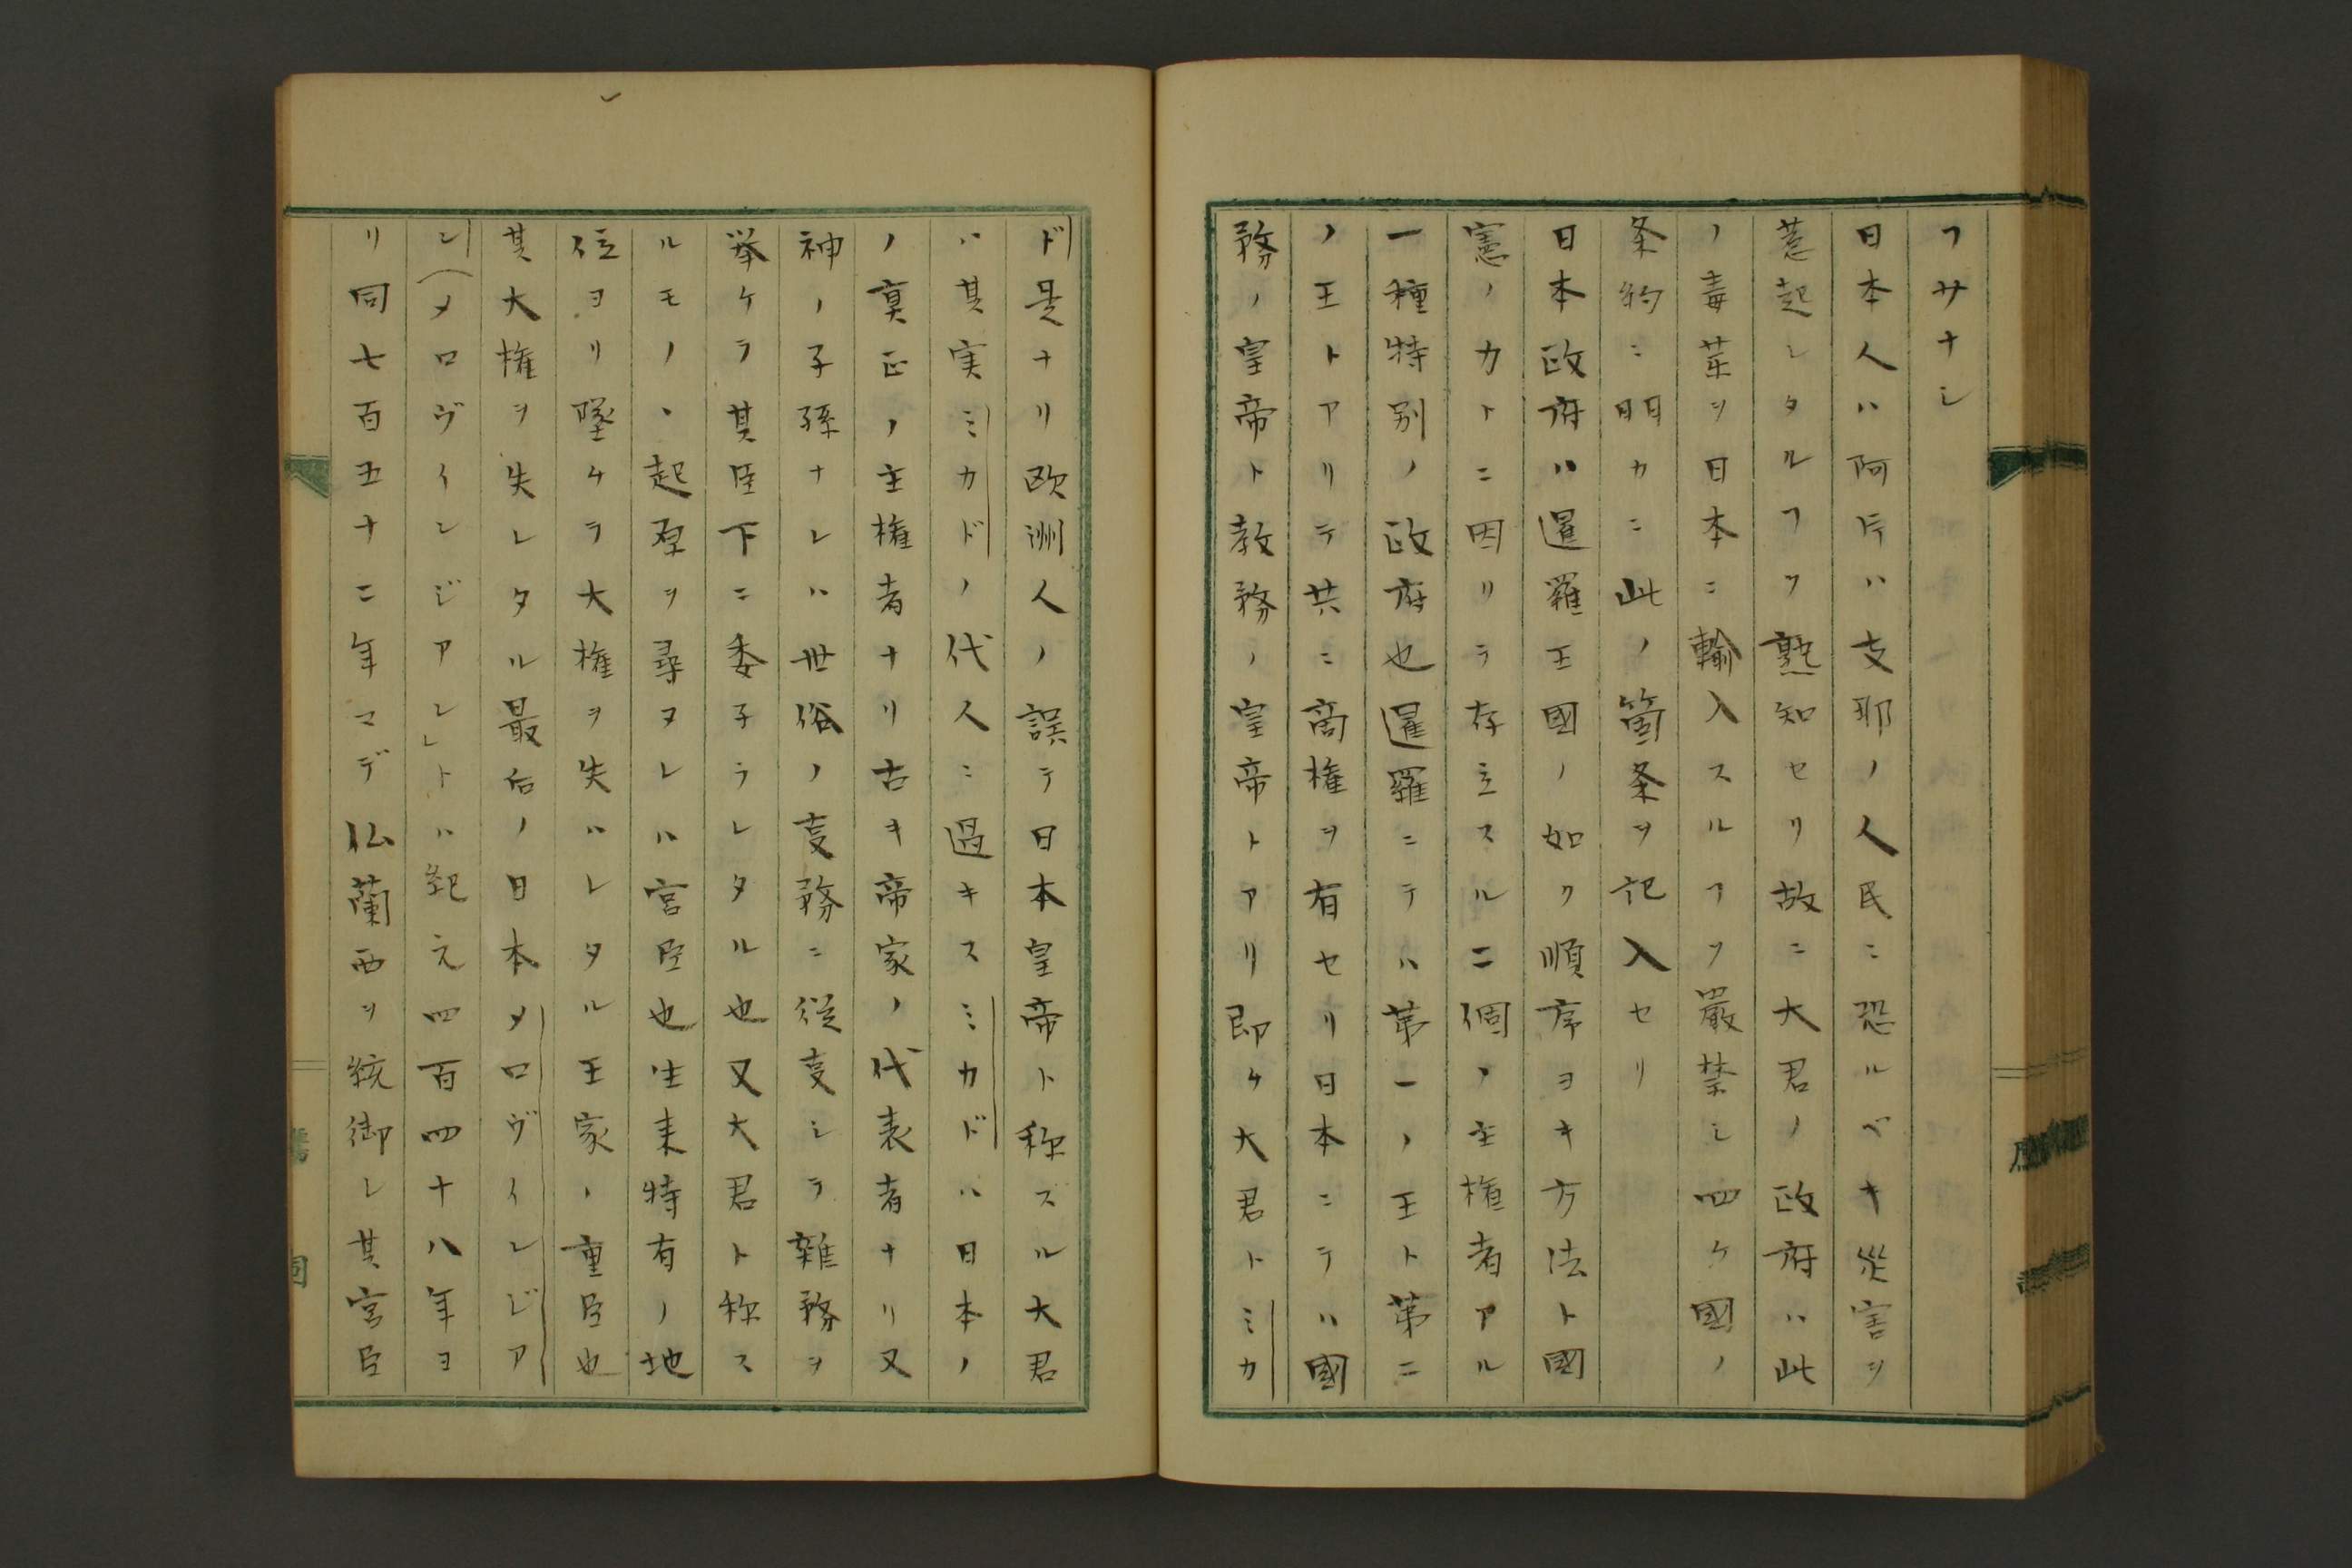 ヿサナシ
日本人ハ阿片ハ支那ノ人民ニ恐ルベキ災害ヲ
惹起シタルヿヲ熟知セリ故ニ大君ノ政府ハ此
ノ毒茎ヲ日本ニ輸入スルヿヲ嚴禁シ四ケ國ノ
条約ニ明カニ此ノ箇条ヲ記入セリ
日本政府ハ暹羅王國ノ如ク順序ヨキ方法ト國
憲ノカトニ因リテ存立スル二個ノ主権者アル
一種特別ノ政府也暹羅ニテハ第一ノ王ト第二
ノ王トアリテ共ニ商権ヲ有セリ日本ニテハ國
務ノ皇帝ト教務ノ皇帝トアリ即ケ大君トミカ
ド是ナリ欧洲人ノ誤テ日本皇帝ト称スル大君
ハ其実ミカドノ代人ニ過キスミカドハ日本ノ
ノ真正ノ主権者ナリ古キ帝家ノ代表者ナリ又
神ノ子孫ナレハ世俗ノ㕝務ニ従㕝シテ雑務ヲ
挙ケテ其臣下ニ委子ラレタル也又大君ト称ス
ルモノヽ起原ヲ尋ヌレハ宮臣也往来特有ノ地
位ヨリ墜ケテ大権ヲ失ハレタル王家ノ重臣也
其大権ヲ失レタル最后ノ日本メロヴインジア
ン(メロヴインジアン」トハ紀元四百四十八年ヨ
リ同七百五十二年マデ仏蘭西ヲ統御シ其宮臣